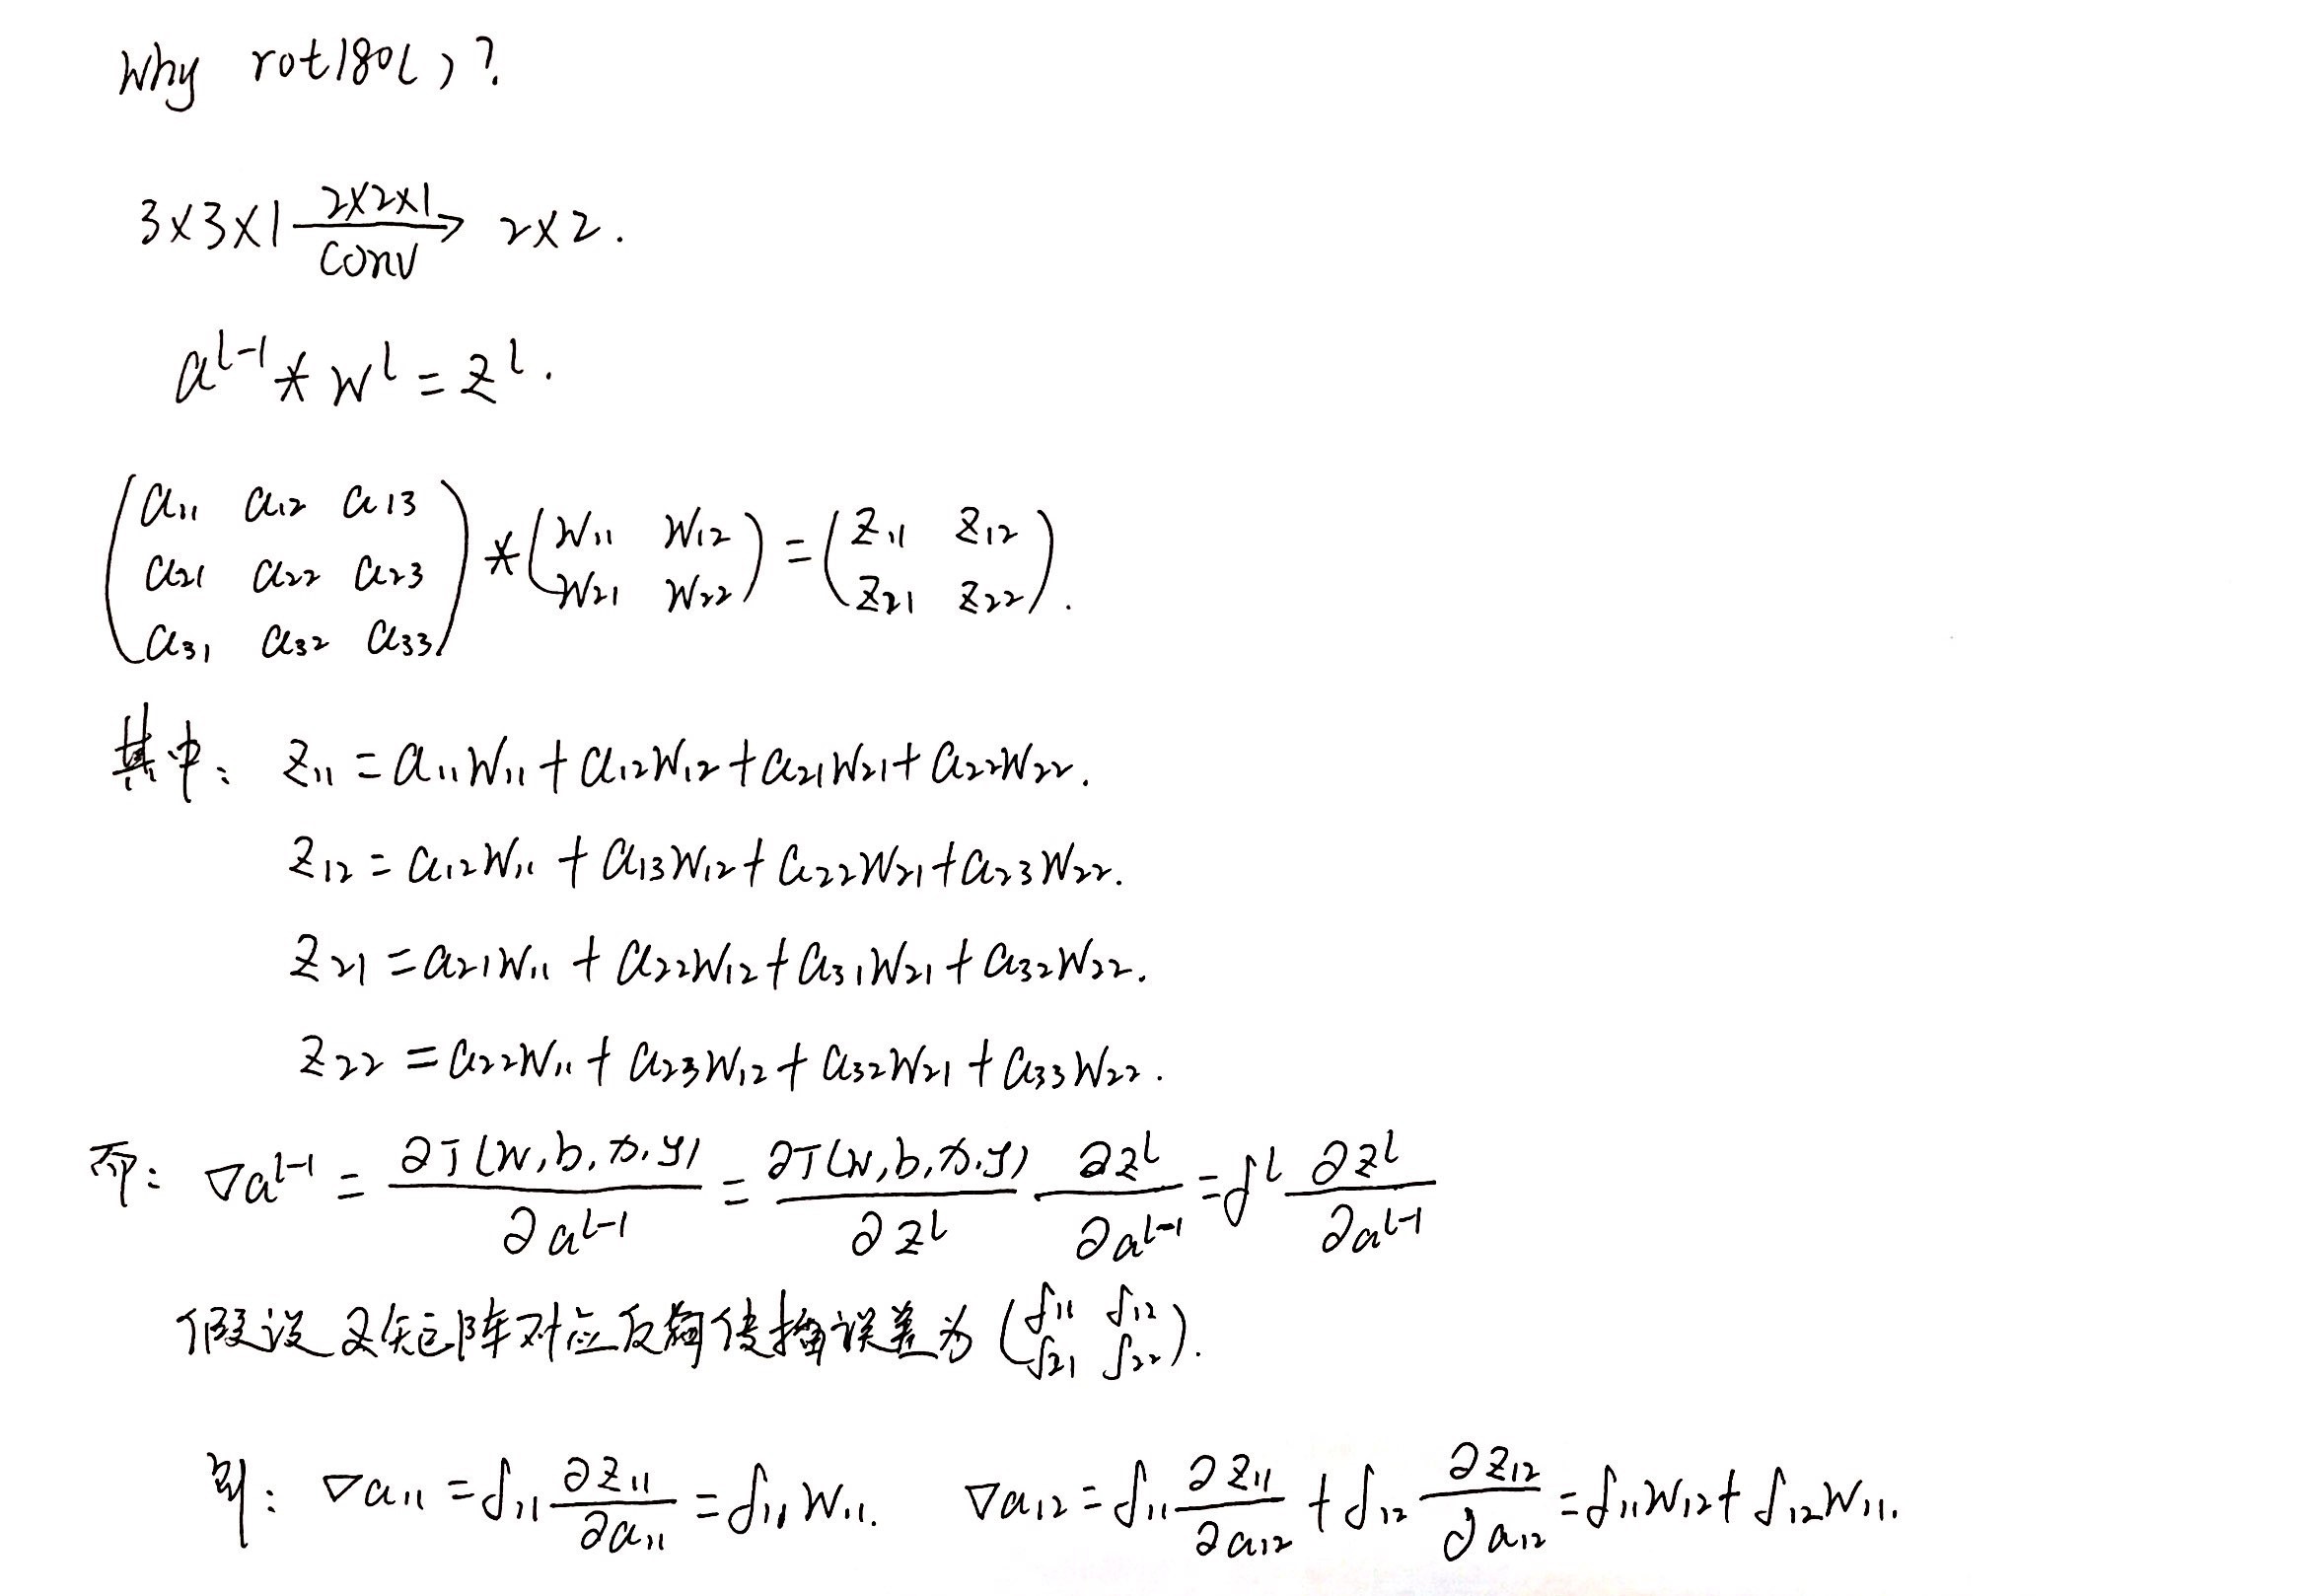 Why rot180( )?
3×3×1 —2×2×1/Conv→ 2×2.
a^{l-1} * W^l = z^l.
(a11 a12 a13; a21 a22 a23; a31 a32 a33) * (W11 W12; W21 W22) = (z11 z12; z21 z22).
其中: z11 = a11W11 + a12W12 + a21W21 + a22W22.
z12 = a12W11 + a13W12 + a22W21 + a23W22.
z21 = a21W11 + a22W12 + a31W21 + a32W22.
z22 = a22W11 + a23W12 + a32W21 + a33W22.
而: ∇a^{l-1} = ∂J(W,b,x,y)/∂a^{l-1} = ∂J(W,b,x,y)/∂z^l ∂z^l/∂a^{l-1} = δ^l ∂z^l/∂a^{l-1}
假设z矩阵对应反向传播误差为 (δ11 δ12; δ21 δ22).
则: ∇a11 = δ11 ∂z11/∂a11 = δ11W11. ∇a12 = δ11 ∂z11/∂a12 + δ12 ∂z12/∂a12 = δ11W12 + δ12W11.